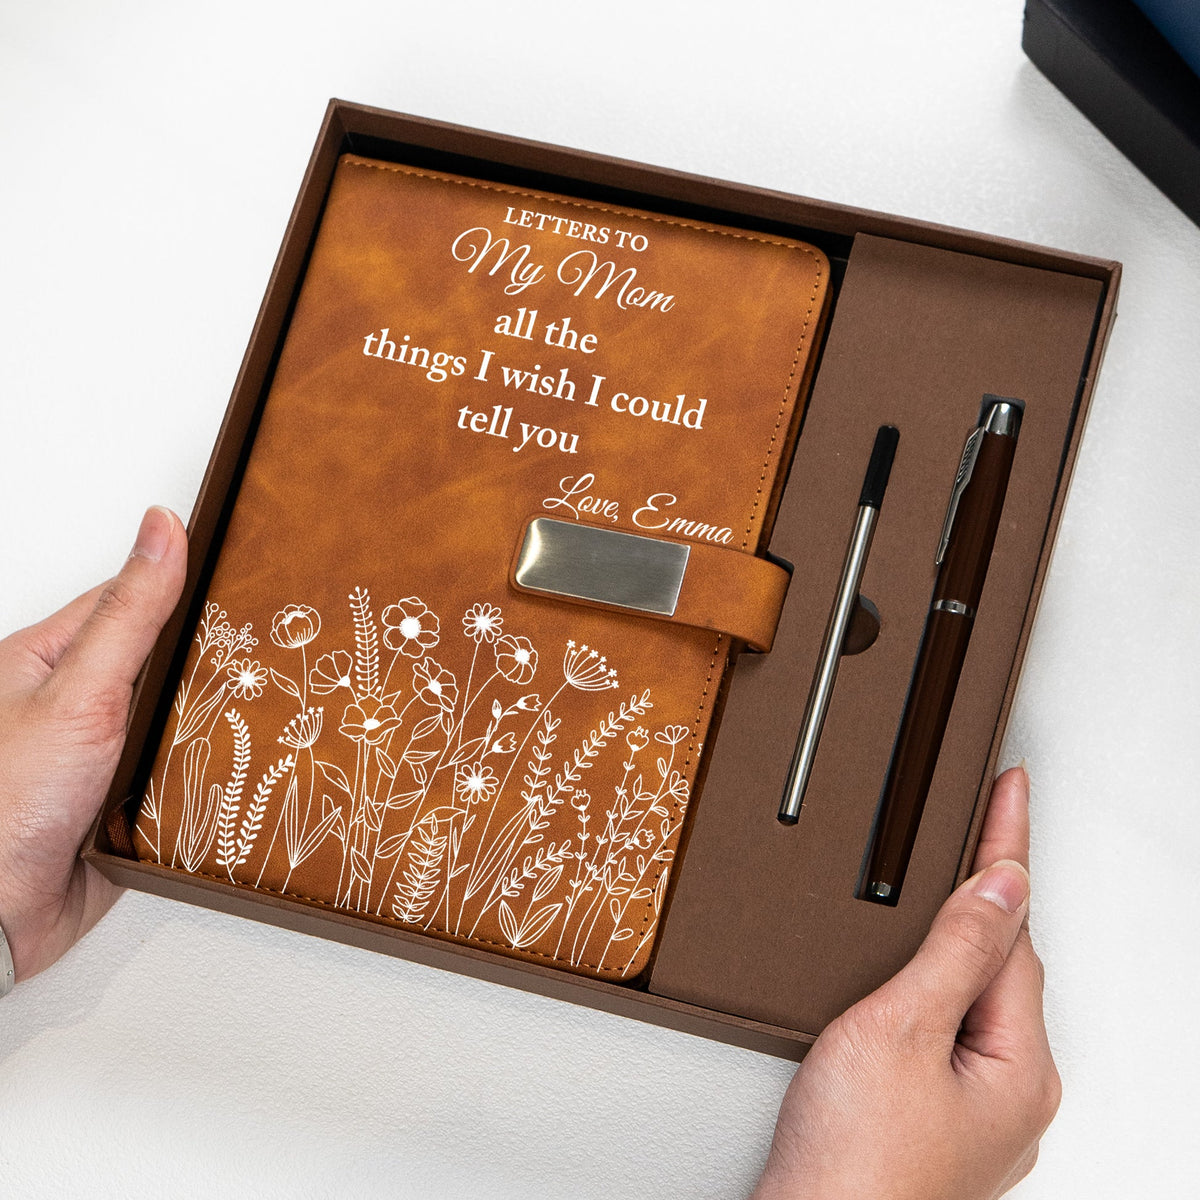 LETTERS TO
My Mom
all the
things I wish I could
tell you
Love, Emma